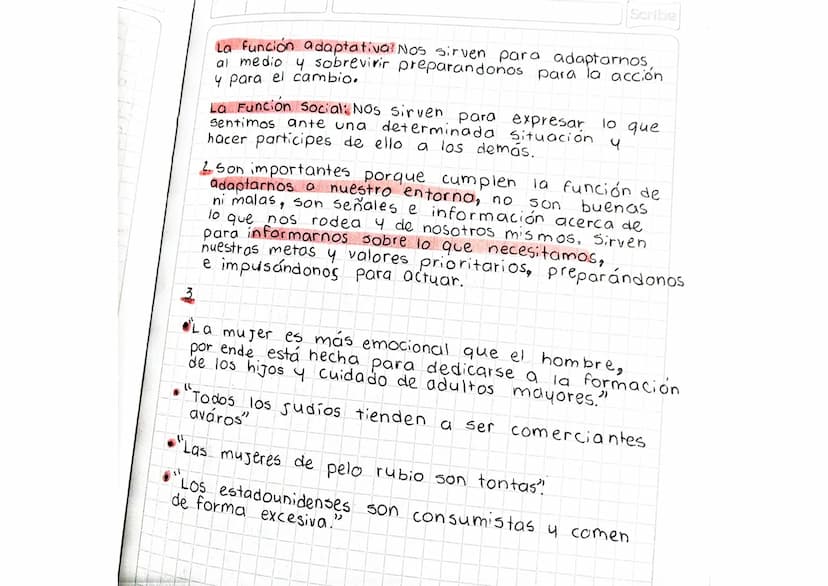 Scribe
La función adaptativa: Nos sirven para adaptarnos
al medio y sobrevivir preparandonos para la acción
y para el cambio.
La Función Social: Nos sirven para expresar lo que
sentimos ante una determinada situación y
hacer participes de ello a los demás.
2. Son importantes porque cumplen la función de
adaptarnos a nuestro entorno, no son buenas
ni malas, son señales e información acerca de
lo que nos rodea y de nosotros mismos. Sirven
para informarnos sobre lo que necesitamos,
nuestras metas y valores prioritarios, preparándonos
e impusándonos para actuar.
3
• "La mujer es más emocional que el hombre,
por ende está hecha para dedicarse a la formación
de los hijos y cuidado de adultos mayores."
• "Todos los judíos tienden a ser comerciantes
aváros"
• "Las mujeres de pelo rubio son tontas".
• "Los estadounidenses son consumistas y comen
de forma excesiva."